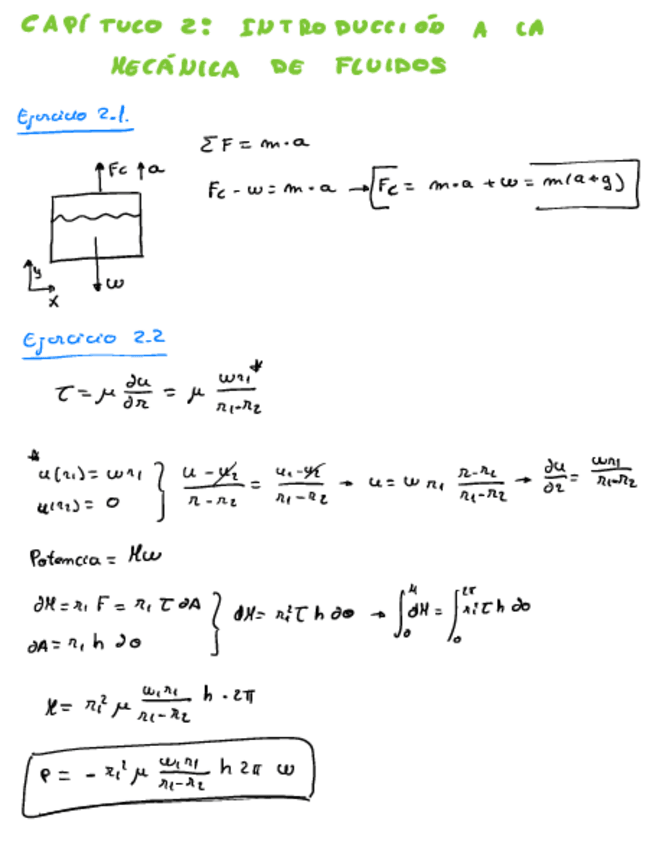 CAPÍTULO 2: INTRODUCCIÓN A LA
MECÁNICA DE FLUIDOS
Ejercicio 2.1.
ΣF = m·a
Fc ↑a
Fc - w = m·a → Fc = m·a + w = m(a+g)
y
w
x
Ejercicio 2.2
τ = μ ∂u/∂r = μ ωr₁/(r₁-r₂) *
* u(r₁) = ωr₁
u(r₂) = 0 } (u-u₂)/(r-r₂) = (u₁-u₂)/(r₁-r₂) → u = ω r₁ (r-r₂)/(r₁-r₂) → ∂u/∂r = ωr₁/(r₁-r₂)
Potencia = Mω
∂M = r₁ F = r₁ τ ∂A
∂A = r₁ h ∂θ } dM = r₁² τ h ∂θ → ∫₀ᴹ dM = ∫₀^2π r₁² τ h ∂θ
M = r₁² μ ω₁r₁/(r₁-r₂) h · 2π
P = - r₁² μ ω₁r₁/(r₁-r₂) h 2π ω